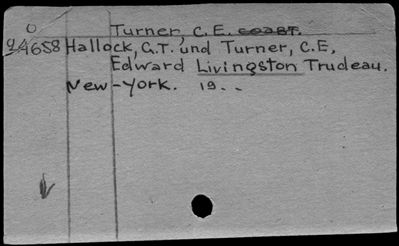 O
Turner, C. E.
24658 Hallock, G.T. und Turner, C.E,
Edward Livingston Trudeau.
New-York. 19..